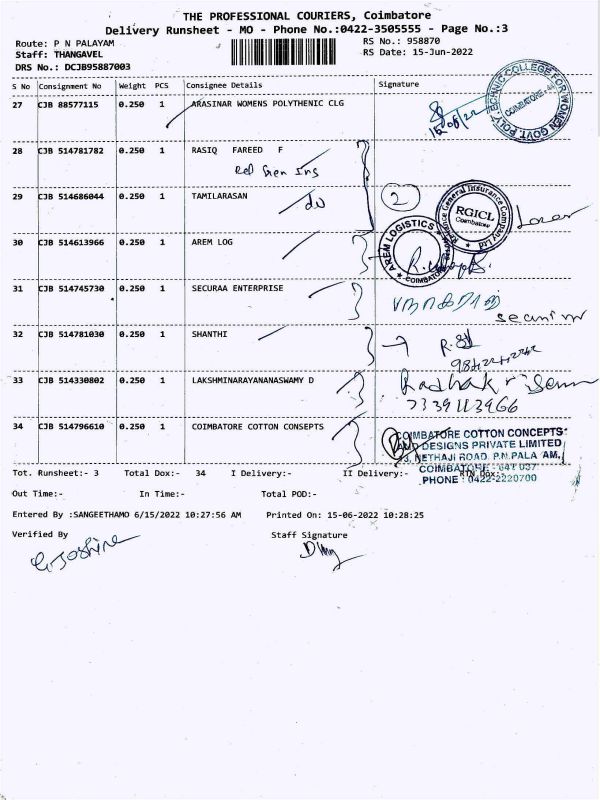 THE PROFESSIONAL COURIERS, Coimbatore
Delivery Runsheet - MO - Phone No.:0422-3505555 - Page No.:3
Route: P N PALAYAM
RS No.: 958870
Staff: THANGAVEL
RS Date: 15-Jun-2022
DRS No.: DCJB95887003
S No Consignment No Weight PCS Consignee Details Signature
27 CJB 88577115 0.250 1 ARASINAR WOMENS POLYTHENIC CLG
COIMBATORE
28 CJB 514781782 0.250 1 RASIQ FAREED F
29 CJB 514686044 0.250 1 TAMILARASAN
do
2
Reliance General Insurance Company
RGICL
Coimbatore
30 CJB 514613966 0.250 1 AREM LOG
AREM LOGISTICS
COIMBATORE
31 CJB 514745730 0.250 1 SECURAA ENTERPRISE
32 CJB 514781030 0.250 1 SHANTHI
33 CJB 514330802 0.250 1 LAKSHMINARAYANANASWAMY D
7339113966
34 CJB 514796610 0.250 1 COIMBATORE COTTON CONSEPTS
COIMBATORE COTTON CONCEPTS
AND DESIGNS PRIVATE LIMITED
NETHAJI ROAD, P.N.PALA AM,
COIMBATORE - 641 037
PHONE : 0422-2220700
Tot. Runsheet:- 3 Total Dox:- 34 I Delivery:- II Delivery:- RTN Dox:-
Out Time:- In Time:- Total POD:-
Entered By :SANGEETHAMO 6/15/2022 10:27:56 AM Printed On: 15-06-2022 10:28:25
Verified By Staff Signature